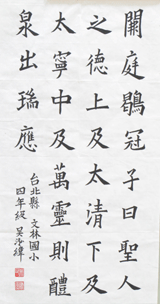 闕庭鶡冠子曰聖人
之德上及太清下及
太寧中及萬靈則醴
泉出瑞應
台北縣文林國小
四年級吳